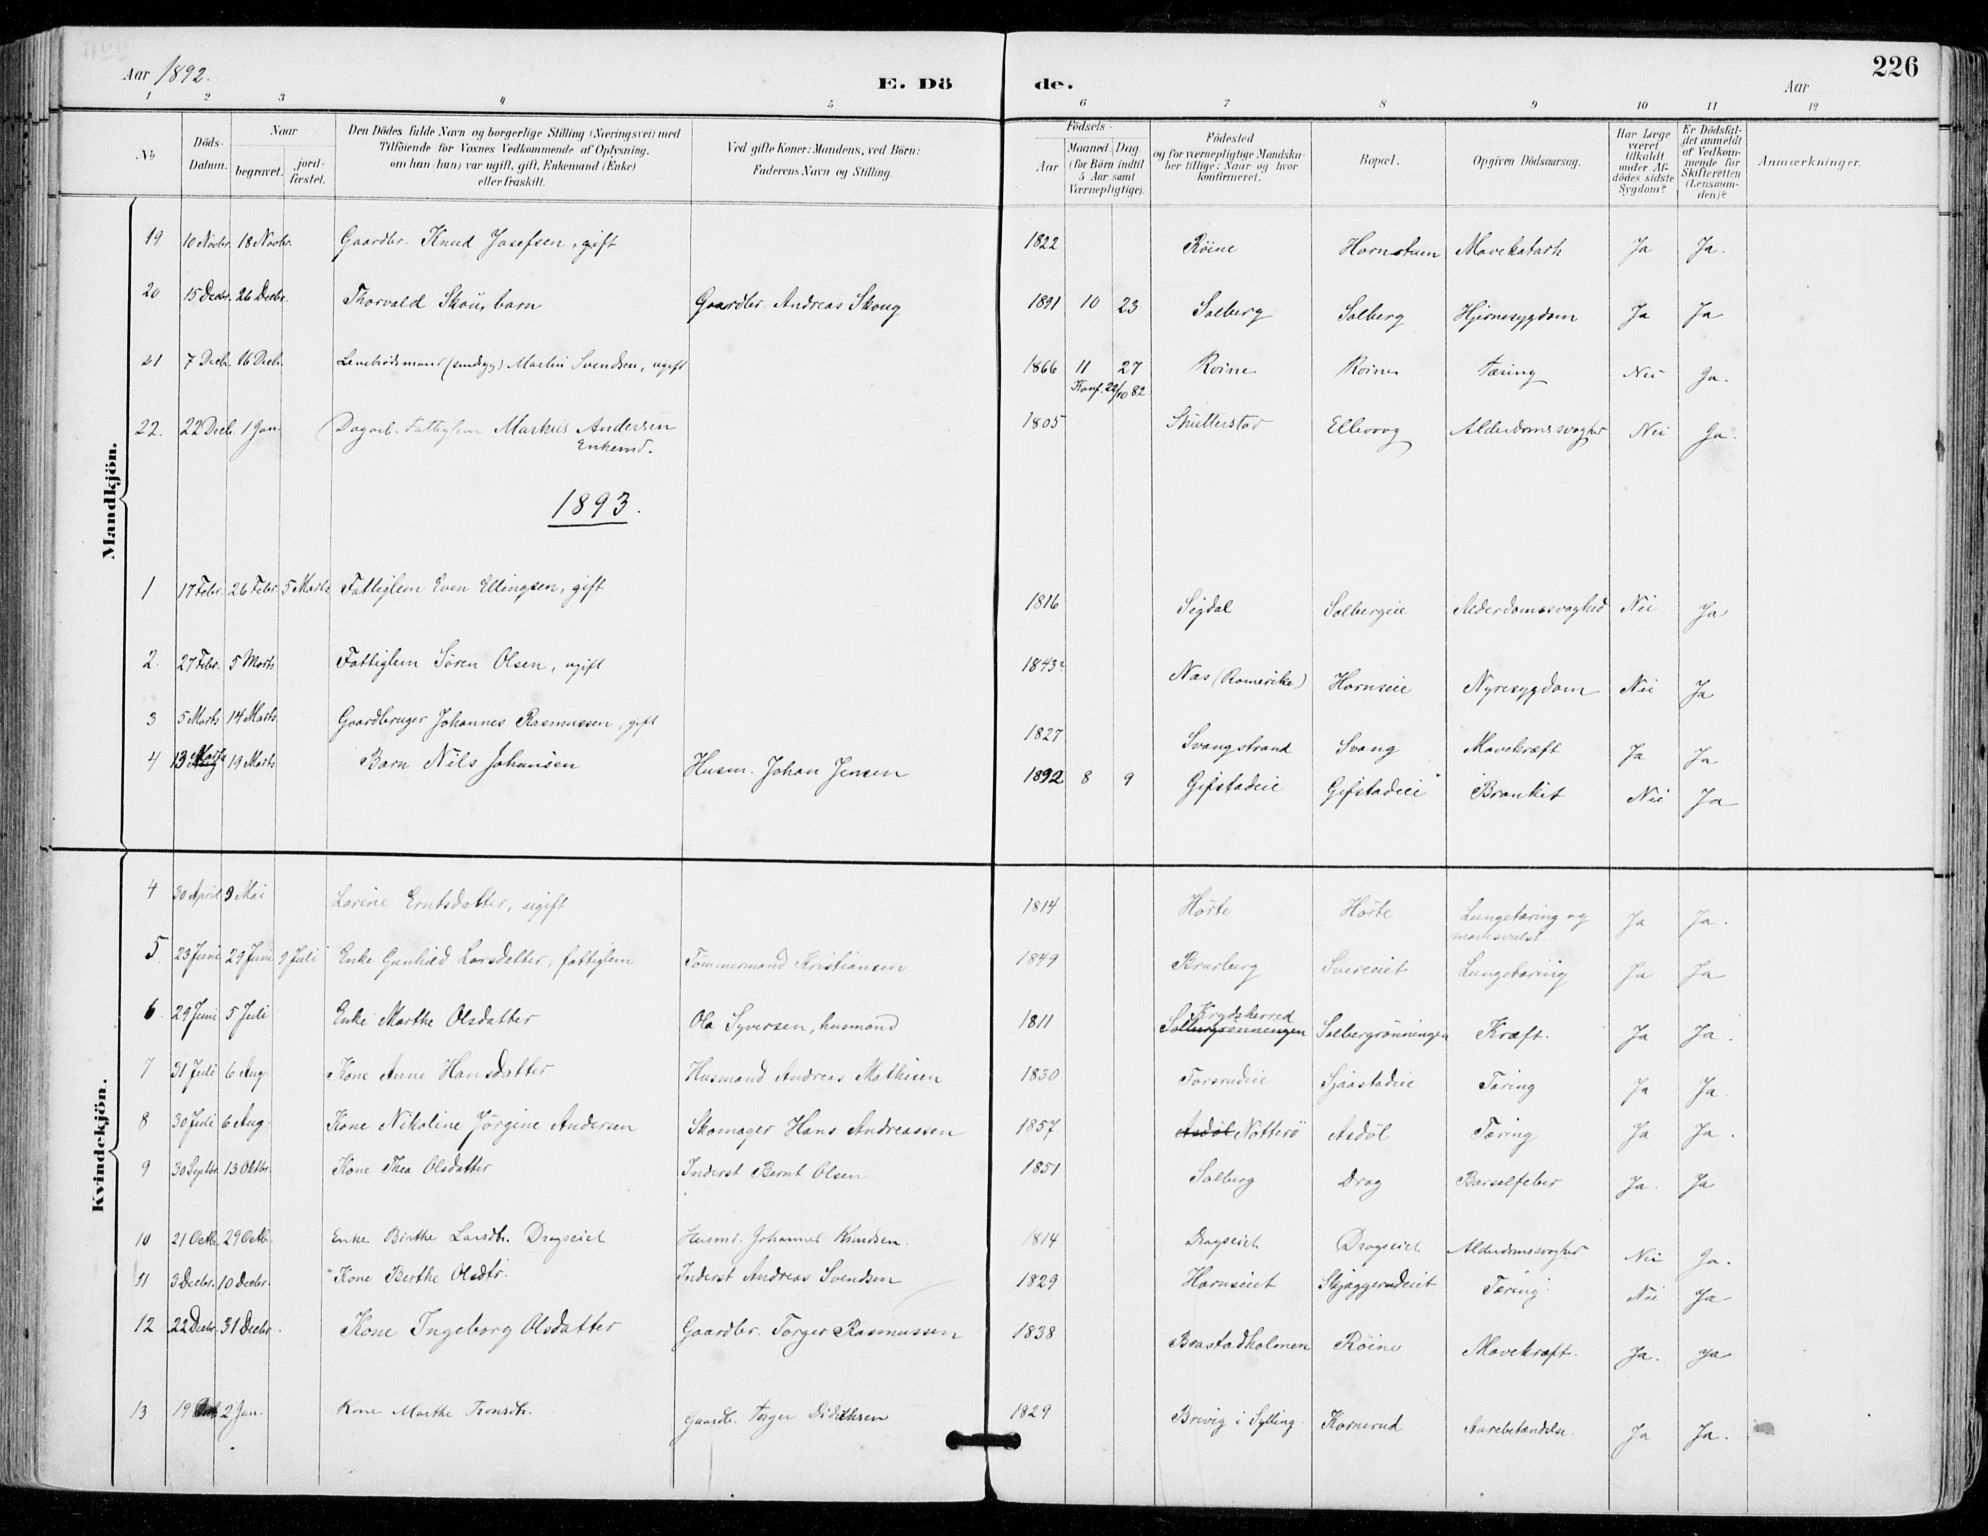 Aar 1892.
E. Dö de.
Aar
226
1 2 3 4 5 6 7 8 9 10 11 12
No
Döds-Datum.
Naar
begravet.
jord-fæstet.
Den Dödes fulde Navn og borgerlige Stilling (Næringsvei) med
Tilföiende for Voxnes Vedkommende af Oplysning,
om han (hun) var ugift, gift, Enkemand (Enke)
eller fraskilt.
Ved gifte Koner: Mandens, ved Börn:
Faderens Navn og Stilling.
Födsels-
Aar
Maaned. Dag
(for Börn indtil
5 Aar samt
Værnepligtige).
Födested
og for værnepligtige Mandska-
ber tillige: Naar og hvor
konfirmeret.
Bopæl.
Opgiven Dödsaarsag.
Har Læge
været
tilkaldt
under Af-
dödes sidste
Sygdom?
Er Dödsfal-
det anmeldt
af Vedkom-
mende for
Skifteretten
(Lensman-
den)?
Anmærkninger.
Mandkjön.
19 10 Novbr. 18 Novbr. Gaardbr. Knud Josefsen, gift 1822 Röine Hornstuen Mavekatarh Ja Ja.
20 15 Decbr. 26 Decbr. Thorvald barn Gaardbr. Andreas Skoug 1891 10 23 Solberg Solberg Hjernesygdom Ja Ja
21 7 Decb. 16 Decb. Martin Svendsen, ugift 1866 11 27 Roine Roine Tæring Nei Ja.
Konf. 29/10 82
22. 22 Decb. 1 Jan. Dagarb. Fattiglem Markus Andersen 1805 Skutterstad Ellevog Alderdomssvaghed Nei Ja.
Enkemd.
1893.
1 17 Febr. 26 Febr. 5 Marts Fattiglem Even Ellingsen, gift 1816 Sigdal Solbergeie Alderdomssvaghed Nei Ja
2. 27 Febr. 5 Marts Fattiglem Sören Olsen, ugift 1843? Næs (Romerike) Hornseie Nyresygdom Nei Ja
3 5 Marts 14 Marts Gaardbruger Johannes Rasmussen, gift 1827 Svangstrand Svang Mavekræft Ja Ja
4 13 Marts 19 Marts Barn Nils Johansen Husm. Johan Jensen 1892 8 9 Gifstadeie Gifstadeie Bronkit Nei Ja
Kvindekjön.
4 30 April 9 Mai Larine Erntsdatter, ugift 1814 Hörte Hörte Lungetæring og Ja Ja.
5. 23 Juni 29 Juni 9 Juli Enke Gunhild Larsdatter, fattiglem Tömmermand Kristiansen 1849 Lungetæring Ja Ja
6. 29 Juni 5 Juli Enke Marthe Olsdatter Ola Syversen, husmand 1811 Krydsherred Solbergrönningen Solbergrönningen Kræft. Ja Ja.
7 31 Juli 6 Aug. Kone Anne Hansdatter Husmand Andreas Mathisen 1830 Torsrudeie Sjaastadeie Tæring Ja Ja.
8 30 Juli 6 Aug. Kone Nikoline Jörgine Andersen Skomager Hans Andreassen 1857 Asdöl Nötterö Asdöl Tæring Ja Ja.
9 30 Septbr. 13 Oktbr. Kone Thea Olsdatter Inderst Bernt Olsen 1851 Solberg Drag Barselfeber Ja. Ja
10 21 Octb. 29 Octb. Enke Birthe Larsdtr. Dragseiet Husmd. Johannes Knudsen. 1814 Dragseiet Dragseiet Alderdomssvaghed Nei Ja.
11 3 Decbr. 10 Decbr. Kone Berthe Olsdtr. Inderst Andreas Svendsen 1829 Hornseiet Skjaggerudeiet Tæring. Nei Ja
12 22 Decbr. 31 Decbr. Kone Ingeborg Olsdatter Gaardbr. Torger Rasmussen 1838 Brastadholmen Röine Mavekræft. Ja. Ja
13 19 2 Jan. Kone Marthe Tronsdtr. Gaardb. Torger Didriksen 1829 Brevig i Sylling Kornerud Aarebetændelse. Ja Ja.